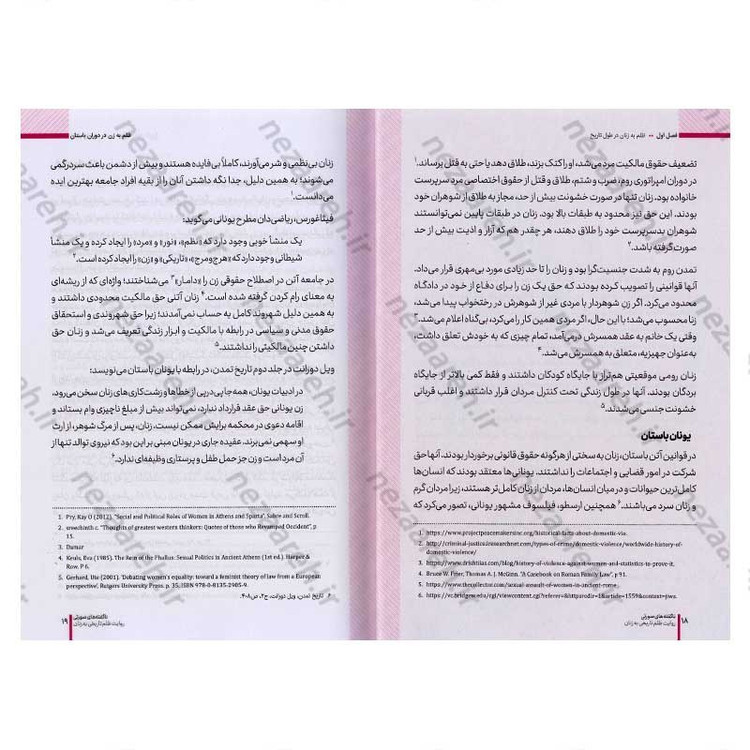 فصل اول •• ظلم به زنان در طول تاریخ
تضعیف حقوق مالکیت مرد می‌شد، او را کتک بزند، طلاق دهد یا حتی به قتل برساند.۱
در دوران امپراتوری روم، ضرب و شتم، طلاق و قتل از حقوق اختصاصی مرد سرپرست
خانواده بود. زنان تنها در صورت خشونت بیش از حد، مجاز به طلاق از شوهران خود
بودند. این حق نیز محدود به طبقات بالا بود. زنان در طبقات پایین نمی‌توانستند
شوهران بدسرپرست خود را طلاق دهند، هر چقدر هم که آزار و اذیت بیش از حد
صورت گرفته باشد.۲
تمدن روم به شدت جنسیت‌گرا بود و زنان را تا حد زیادی مورد بی‌مهری قرار می‌داد.
آنها قوانینی را تصویب کرده بودند که حق یک زن را برای دفاع از خود در دادگاه
محدود می‌کرد. اگر زن شوهردار با مردی غیر از شوهرش در رختخواب پیدا می‌شد،
زنا محسوب می‌شد؛ با این حال، اگر مردی همین کار را می‌کرد، بی‌گناه اعلام می‌شد.۳
وقتی یک خانم به عقد همسرش درمی‌آمد، تمام چیزی که به خودش تعلق داشت،
به‌عنوان جهیزیه، متعلق به همسرش می‌شد.۴
زنان رومی موقعیتی هم‌تراز با جایگاه کودکان داشتند و فقط کمی بالاتر از جایگاه
بردگان بودند. آنها در طول زندگی تحت کنترل مردان قرار داشتند و اغلب قربانی
خشونت جنسی می‌شدند.۵
یونان باستان
در قوانین آتن باستان، زنان به سختی از هرگونه حقوق قانونی برخوردار بودند. آنها حق
شرکت در امور قضایی و اجتماعات را نداشتند. یونانی‌ها معتقد بودند که انسان‌ها
کامل‌ترین حیوانات و در میان انسان‌ها، مردان از زنان کامل‌تر هستند، زیرا مردان گرم
و زنان سرد می‌باشند.۶ همچنین ارسطو، فیلسوف مشهور یونانی، تصور می‌کرد که
1. https://www.projectpeacemakersinc.org/historical-facts-about-domestic-vio.
2. http://criminal-justice.iresearchnet.com/types-of-crime/domestic-violence/worldwide-history-of-
domestic-violence/
3. https://www.drishtiias.com/blog/history-of-violence-against-women-and-statistics-to-prove-it.
4. Bruce W. Frier, Thomas A. J. McGinn. "A Casebook on Roman Family Law", p 91.
5. https://www.thecollector.com/sexual-assault-of-women-in-ancient-rome
6. https://vc.bridgew.edu/cgi/viewcontent.cgi?referer=&httpsredir=1&article=1559&context=jiws.
۱۸
ناگفته‌های صورتی
روایت ظلم تاریخی به زنان
ظلم به زن در دوران باستان
زنان بی‌نظمی و شر می‌آورند، کاملاً بی‌فایده هستند و بیش از دشمن باعث سردرگمی
می‌شوند؛ به همین دلیل، جدا نگه داشتن آنان را از بقیه افراد جامعه بهترین ایده
می‌دانست.۱
فیثاغورس، ریاضی‌دان مطرح یونانی می‌گوید:
یک منشأ خوبی وجود دارد که «نظم»، «نور» و «مرد» را ایجاد کرده و یک منشأ
شیطانی وجود دارد که «هرج‌ومرج»، «تاریکی» و «زن» را ایجاد کرده است.۲
در جامعه آتن در اصطلاح حقوقی زن را «دامار»۳ می‌شناختند؛ واژه‌ای که از ریشه‌ای
به معنای رام کردن گرفته شده است.۴ زنان آتنی حق مالکیت محدودی داشتند و
به همین دلیل شهروند کامل به حساب نمی‌آمدند؛ زیرا حق شهروندی و استحقاق
حقوق مدنی و سیاسی در رابطه با مالکیت و ابزار زندگی تعریف می‌شد و زنان حق
داشتن چنین مالکیتی را نداشتند.۵
ویل دورانت در جلد دوم تاریخ تمدن، در رابطه با یونان باستان می‌نویسد:
در ادبیات یونان، همه‌جا پی‌درپی از خطاها و زشت‌کاری‌های زنان سخن می‌رود.
زن یونانی حق عقد قرارداد ندارد، نمی‌تواند بیش از مبلغ ناچیزی وام بستاند و
اقامه دعوی در محکمه برایش ممکن نیست. زنان، پس از مرگ شوهر، از ارث
او سهمی نمی‌برند. عقیده جاری در یونان مبنی بر این بود که نیروی تولد تنها از
آن مرد است و زن جز حمل طفل و پرستاری وظیفه‌ای ندارد.۶
1. Pry, Kay O (2012). "Social and Political Roles of Women in Athens and Sparta". Sabre and Scroll.
2. "Thoughts of greatest western thinkers: Quotes of those who Revamped Occident", p
15.
3. Damar
4. Keuls, Eva (1985). The Rein of the Phallus: Sexual Politics in Ancient Athens (1st ed.). Harper &
Row. P 6.
5. Gerhard, Ute (2001). 'Debating women's equality: toward a feminist theory of law from a European
perspective', Rutgers University Press. p. 35; ISBN 978-0-8135-2905-9.
۶. تاریخ تمدن، ویل دورانت، ج۲، ص۴۰۸.
ناگفته‌های صورتی
روایت ظلم تاریخی به زنان
۱۹
nezaareh.ir